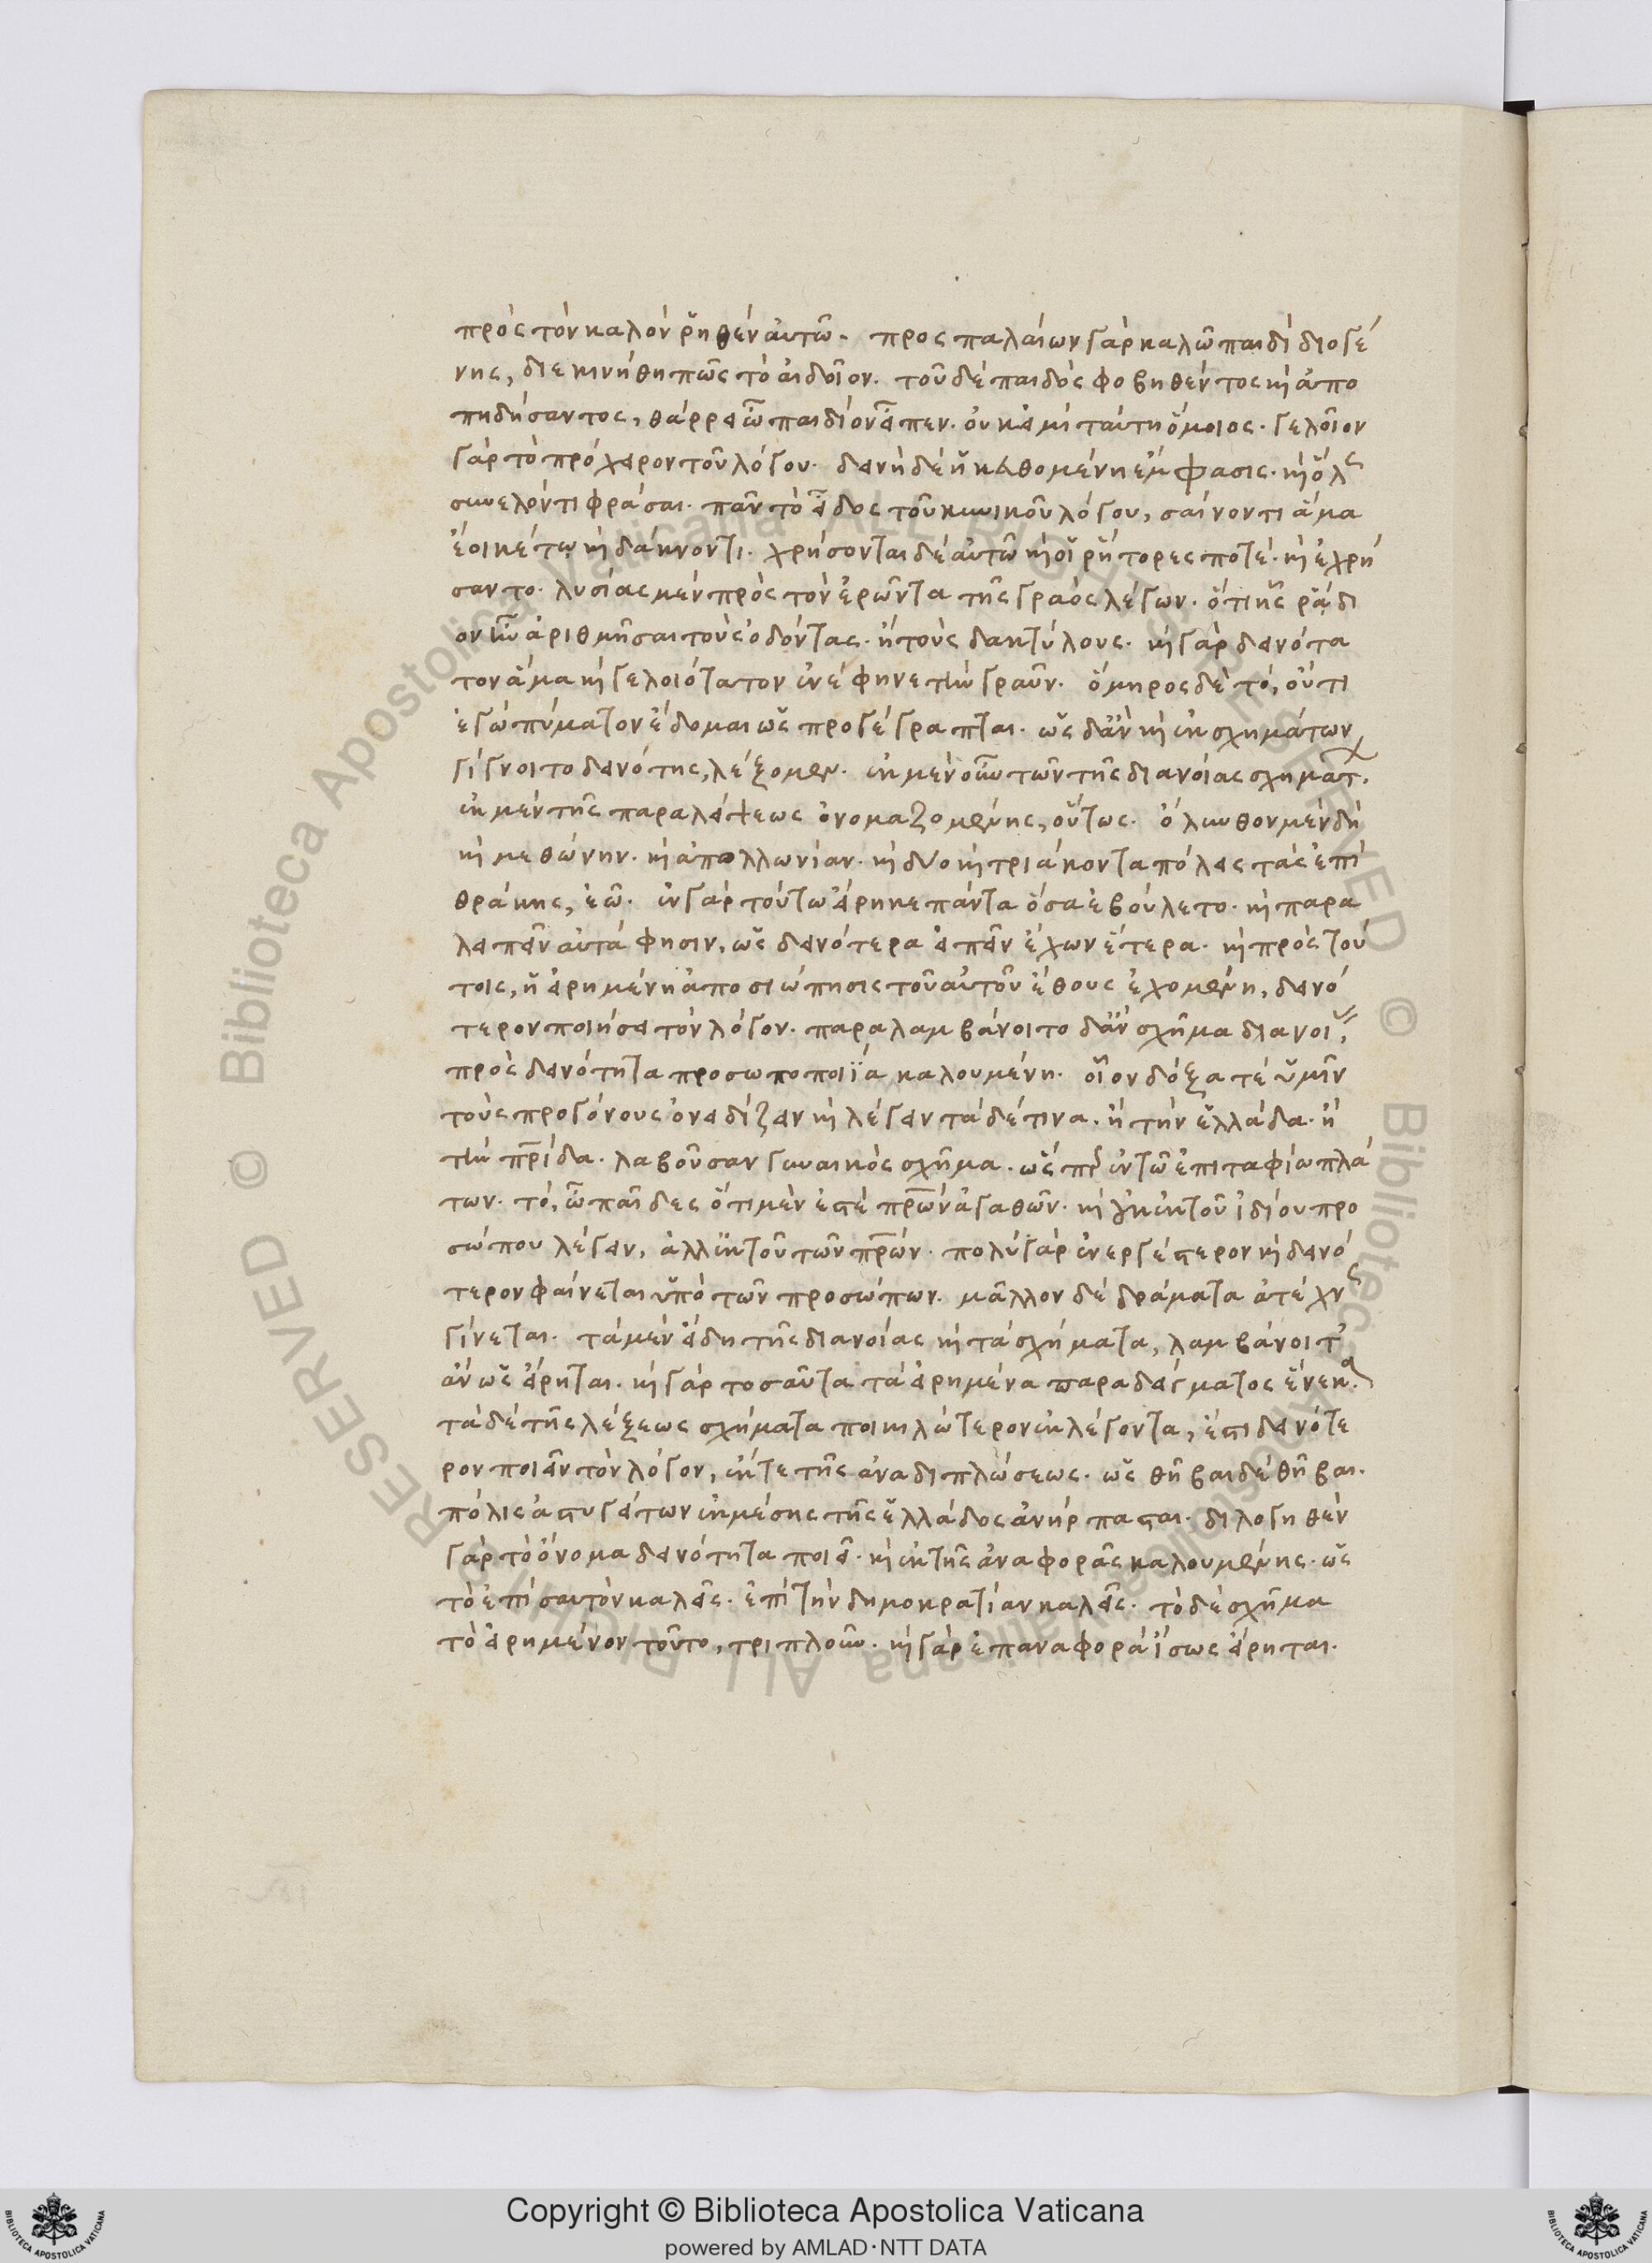 πρὸς τὸν καλὸν ῥηθὲν αὐτῶ. προς παλαίων γὰρ καλῶ παιδὶ διογέ
νης, διεκινήθη πῶς τὸ αἰδοῖον. τοῦ δὲ παιδὸς φοβηθέντος κὶ ἀπο
πηδήσαντος, θάρρει ὦ παιδίον εἶπεν. οὐκ εἰμὶ ταύτη ὅμοιος. γελοῖον
γὰρ τὸ πρόχειρον τοῦ λόγου. δεινὴ δὲ ἡ κευθομένη ἔμφασις. κὶ ὅλς
συνελόντι φράσαι. πᾶν τὸ εἶδος τοῦ κυνικοῦ λόγου, σαίνοντι ἅμα
ἔοικέ τῳ κὶ δάκνοντι. χρήσονται δὲ αὐτῶ κὶ οἱ ῥήτορες ποτέ. κὶ ἐχρή
σαντο. λυσίας μὲν πρὸς τὸν ἐρῶντα τῆς γραὸς λέγων. ὅτι ἧς ῥᾴδι
ον ἦν ἀριθμῆσαι τοὺς ὀδόντας. ἢ τοὺς δακτύλους. κὶ γὰρ δεινότα
τον ἅμα κὶ γελοιότατον ἐνέφηνε τὴν γραῦν. ὅμηρος δὲ τό, οὖτι
ἐγὼ πύματον ἔδομαι ὡς προγέγραπται. ὡς δ' ἂν κὶ ἐκ σχημάτων
γίγνοιτο δεινότης, λέξομεν. ἐκ μὲν οὖν τῶν τῆς διανοίας σχημάτ.
ἐκ μὲν τῆς παραλείψεως ὀνομαζομένης, οὕτως. ὄλυνθον μὲν δὴ
κὶ μεθώνην. κὶ ἀπολλωνίαν. κὶ δύο κὶ τριάκοντα πόλεις τὰς ἐπὶ
θράκης, ἐῶ. ἐν γὰρ τούτω εἴρηκε πάντα ὅσα ἐβούλετο. κὶ παρα
λιπεῖν αὐτά φησιν, ὡς δεινότερα εἰπεῖν ἔχων ἕτερα. κὶ πρὸς τού
τοις, ἡ εἰρημένη ἀποσιώπησις τοῦ αὐτοῦ ἔθους ἐχομένη, δεινό
τερον ποιήσει τὸν λόγον. παραλαμβάνοιτο δ' ἂν σχῆμα διανοί
πρὸς δεινότητα προσωποποιΐα καλουμένη. οἷον δόξατέ ὑμῖν
τοὺς προγόνους ὀνειδίζειν κὶ λέγειν τάδε τινα. ἢ τὴν ἑλλάδα. ἢ
τὴν πρίδα. λαβοῦσαν γυναικὸς σχῆμα. ὥς πρ ἐν τῶ ἐπιταφίω πλά
των. τό, ὦ παῖδες ὅτι μὲν ἐστὲ πρων ἀγαθῶν. κὶ οὐκ ἐκ τοῦ ἰδίου προ
σώπου λέγει, ἀλλ' ἐκ τοῦ τῶν πρων. πολὺ γὰρ ἐνεργέστερον κὶ δεινό
τερον φαίνεται ὑπὸ τῶν προσώπων. μᾶλλον δὲ δράματα ἀτέχνς
γίνεται. τὰ μὲν εἴδη τῆς διανοίας κὶ τὰ σχήματα, λαμβάνοιτ'
ἂν ὡς εἴρηται. κὶ γὰρ τοσαῦτα τὰ εἰρημένα παραδείγματος ἕνεκα.
τὰ δὲ τῆς λέξεως σχήματα ποικιλώτερον ἐκλέγοντα, ἔστι δεινότε
ρον ποιεῖν τὸν λόγον, ἔκ τε τῆς ἀναδιπλώσεως. ὡς θῆβαι δὲ θῆβαι.
πόλις ἀστυγείτων ἐκ μέσης τῆς ἑλλάδος ἀνήρπασται. διλογηθὲν
γὰρ τὸ ὄνομα δεινότητα ποιεῖ. κὶ ἐκ τῆς ἀναφορᾶς καλουμένης. ὡς
τὸ ἐπὶ σαυτὸν καλεῖς. ἐπὶ τὴν δημοκρατίαν καλεῖς. τὸ δὲ σχῆμα
τὸ εἰρημένον τοῦτο, τριπλοῦν. κὶ γὰρ ἐπαναφορά ἴσως εἴρηται.
Copyright © Biblioteca Apostolica Vaticana
powered by AMLAD·NTT DATA